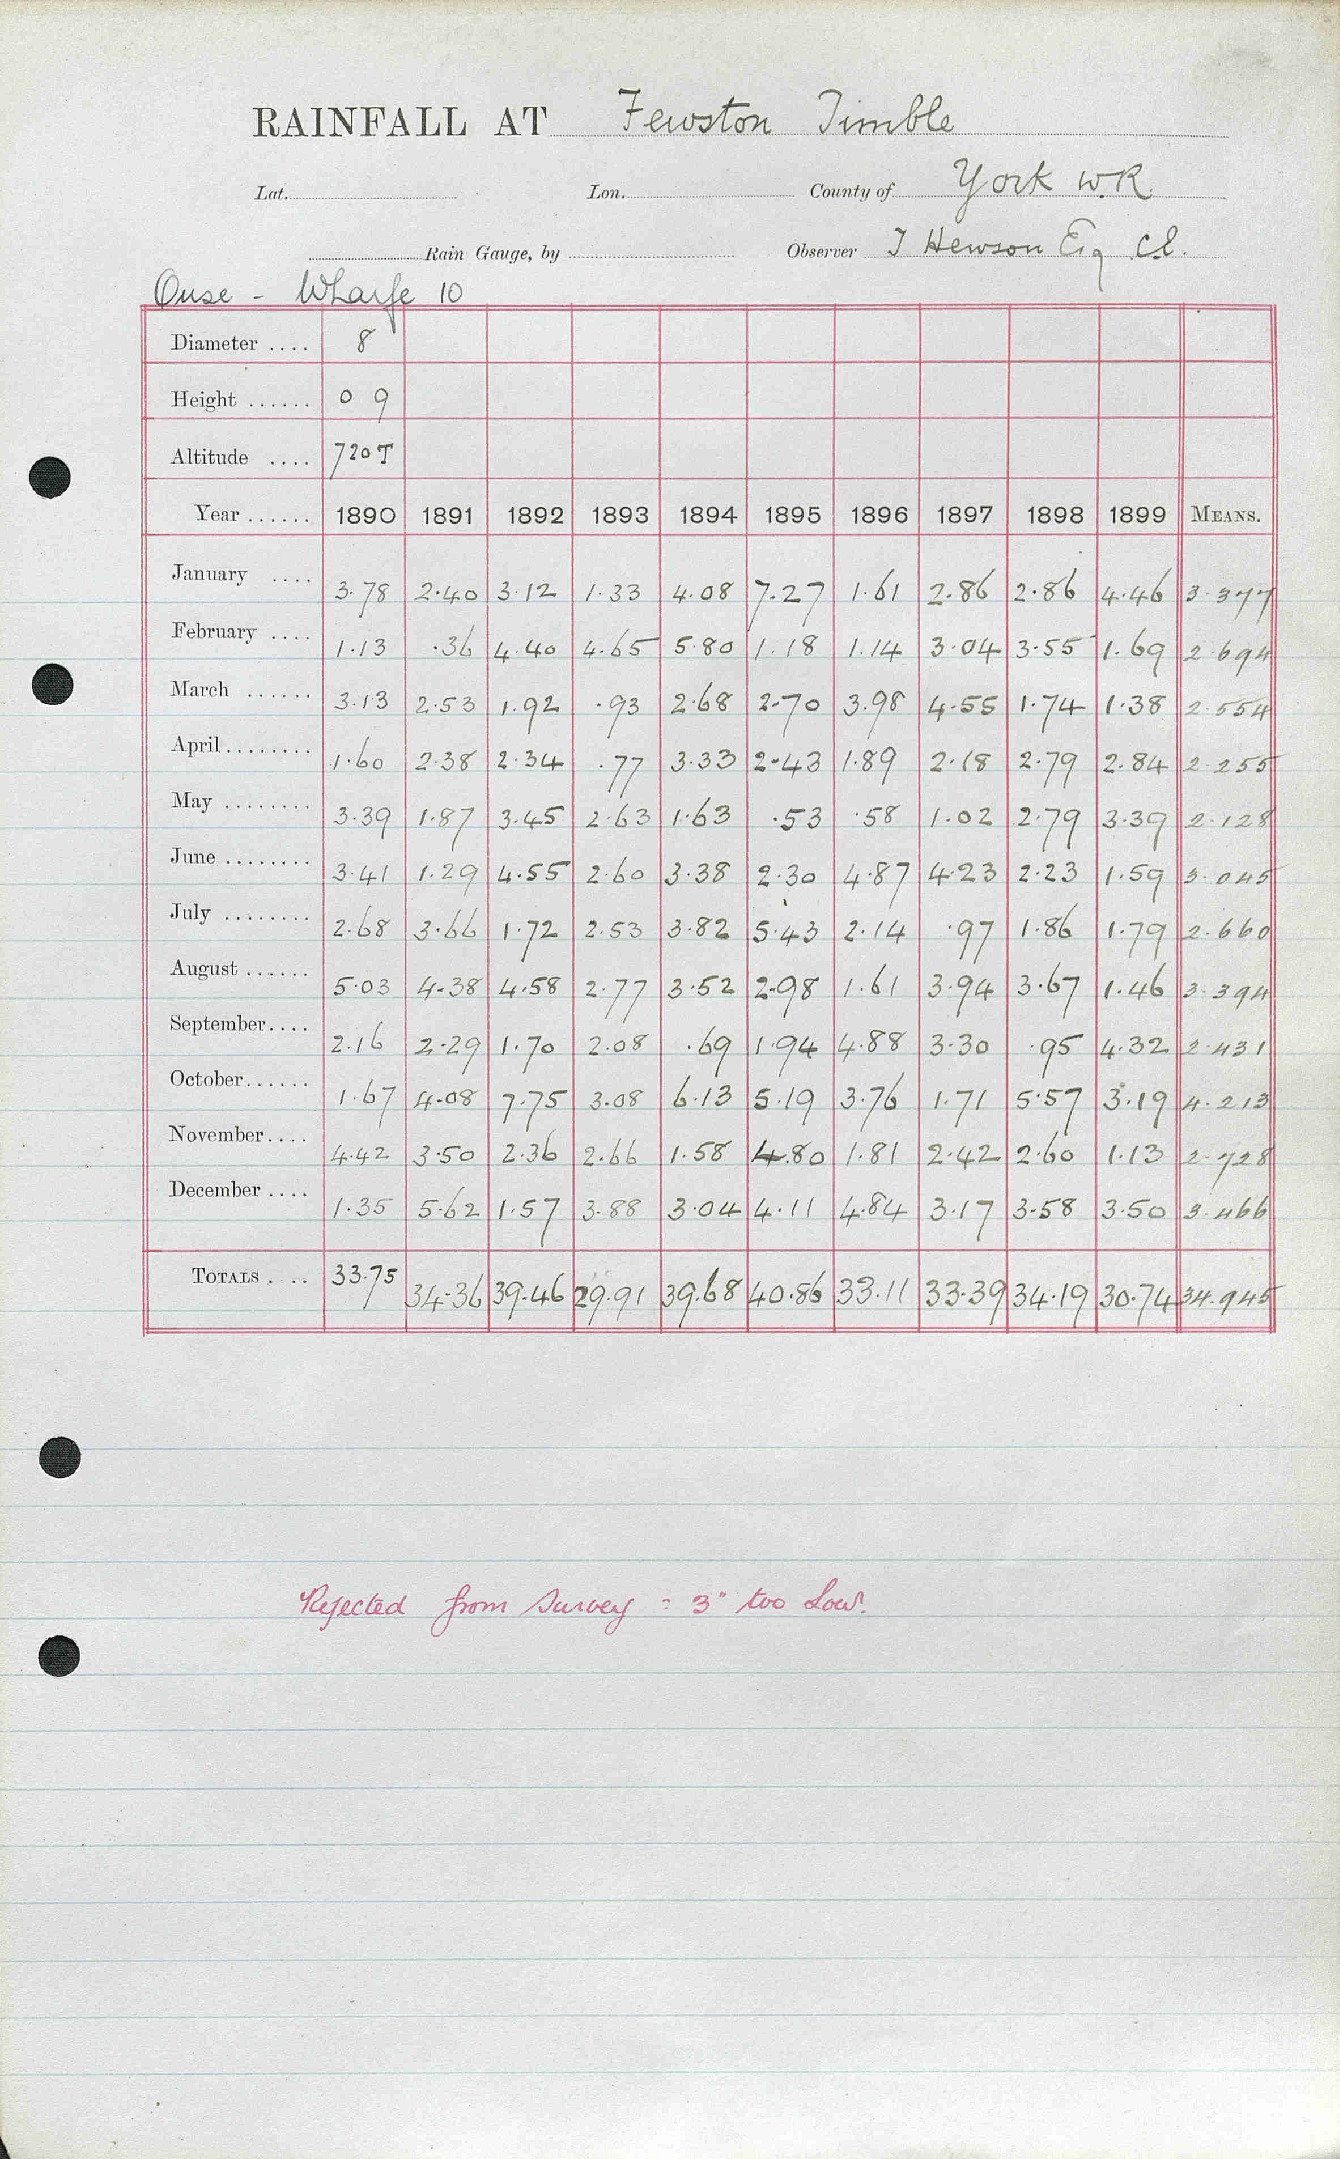 RAINFALL AT Fewston Timble
Lat. Lon. County of York W.R.
Rain Gauge, by Observer T Hewson Esq CE.
Ouse - Wharfe 10
Diameter .... 8
Height ...... 0 9
Altitude .... 720 T
Year ...... 1890 1891 1892 1893 1894 1895 1896 1897 1898 1899 MEANS.
January .... 3.78 2.40 3.12 1.33 4.08 7.27 1.61 2.86 2.86 4.46 3.377
February .... 1.13 .36 4.40 4.65 5.80 1.18 1.14 3.04 3.55 1.69 2.694
March ...... 3.13 2.53 1.92 .93 2.68 2.70 3.98 4.55 1.74 1.38 2.554
April ........ 1.60 2.38 2.34 .77 3.33 2.43 1.89 2.18 2.79 2.84 2.255
May ........ 3.39 1.87 3.45 2.63 1.63 .53 .58 1.02 2.79 3.39 2.128
June ........ 3.41 1.29 4.55 2.60 3.38 2.30 4.87 4.23 2.23 1.59 3.045
July ........ 2.68 3.66 1.72 2.53 3.82 5.43 2.14 .97 1.86 1.79 2.660
August ...... 5.03 4.38 4.58 2.77 3.52 2.98 1.61 3.94 3.67 1.46 3.394
September .... 2.16 2.29 1.70 2.08 .69 1.94 4.88 3.30 .95 4.32 2.431
October ...... 1.67 4.08 7.75 3.08 6.13 5.19 3.76 1.71 5.57 3.19 4.213
November .... 4.42 3.50 2.36 2.66 1.58 4.80 1.81 2.42 2.60 1.13 2.728
December .... 1.35 5.62 1.57 3.88 3.04 4.11 4.84 3.17 3.58 3.50 3.466
TOTALS .... 33.75 34.36 39.46 29.91 39.68 40.86 33.11 33.39 34.19 30.74 34.945
Rejected from Survey = 3" too Low.